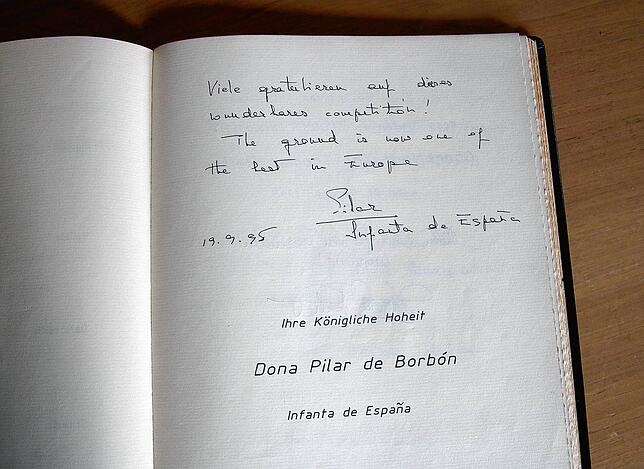 Viele gratulieren auf dieses
wunderbares competition!
The ground is now one of
the best in Europe
Pilar
19.9.95 Infanta de España
Ihre Königliche Hoheit
Dona Pilar de Borbón
Infanta de España